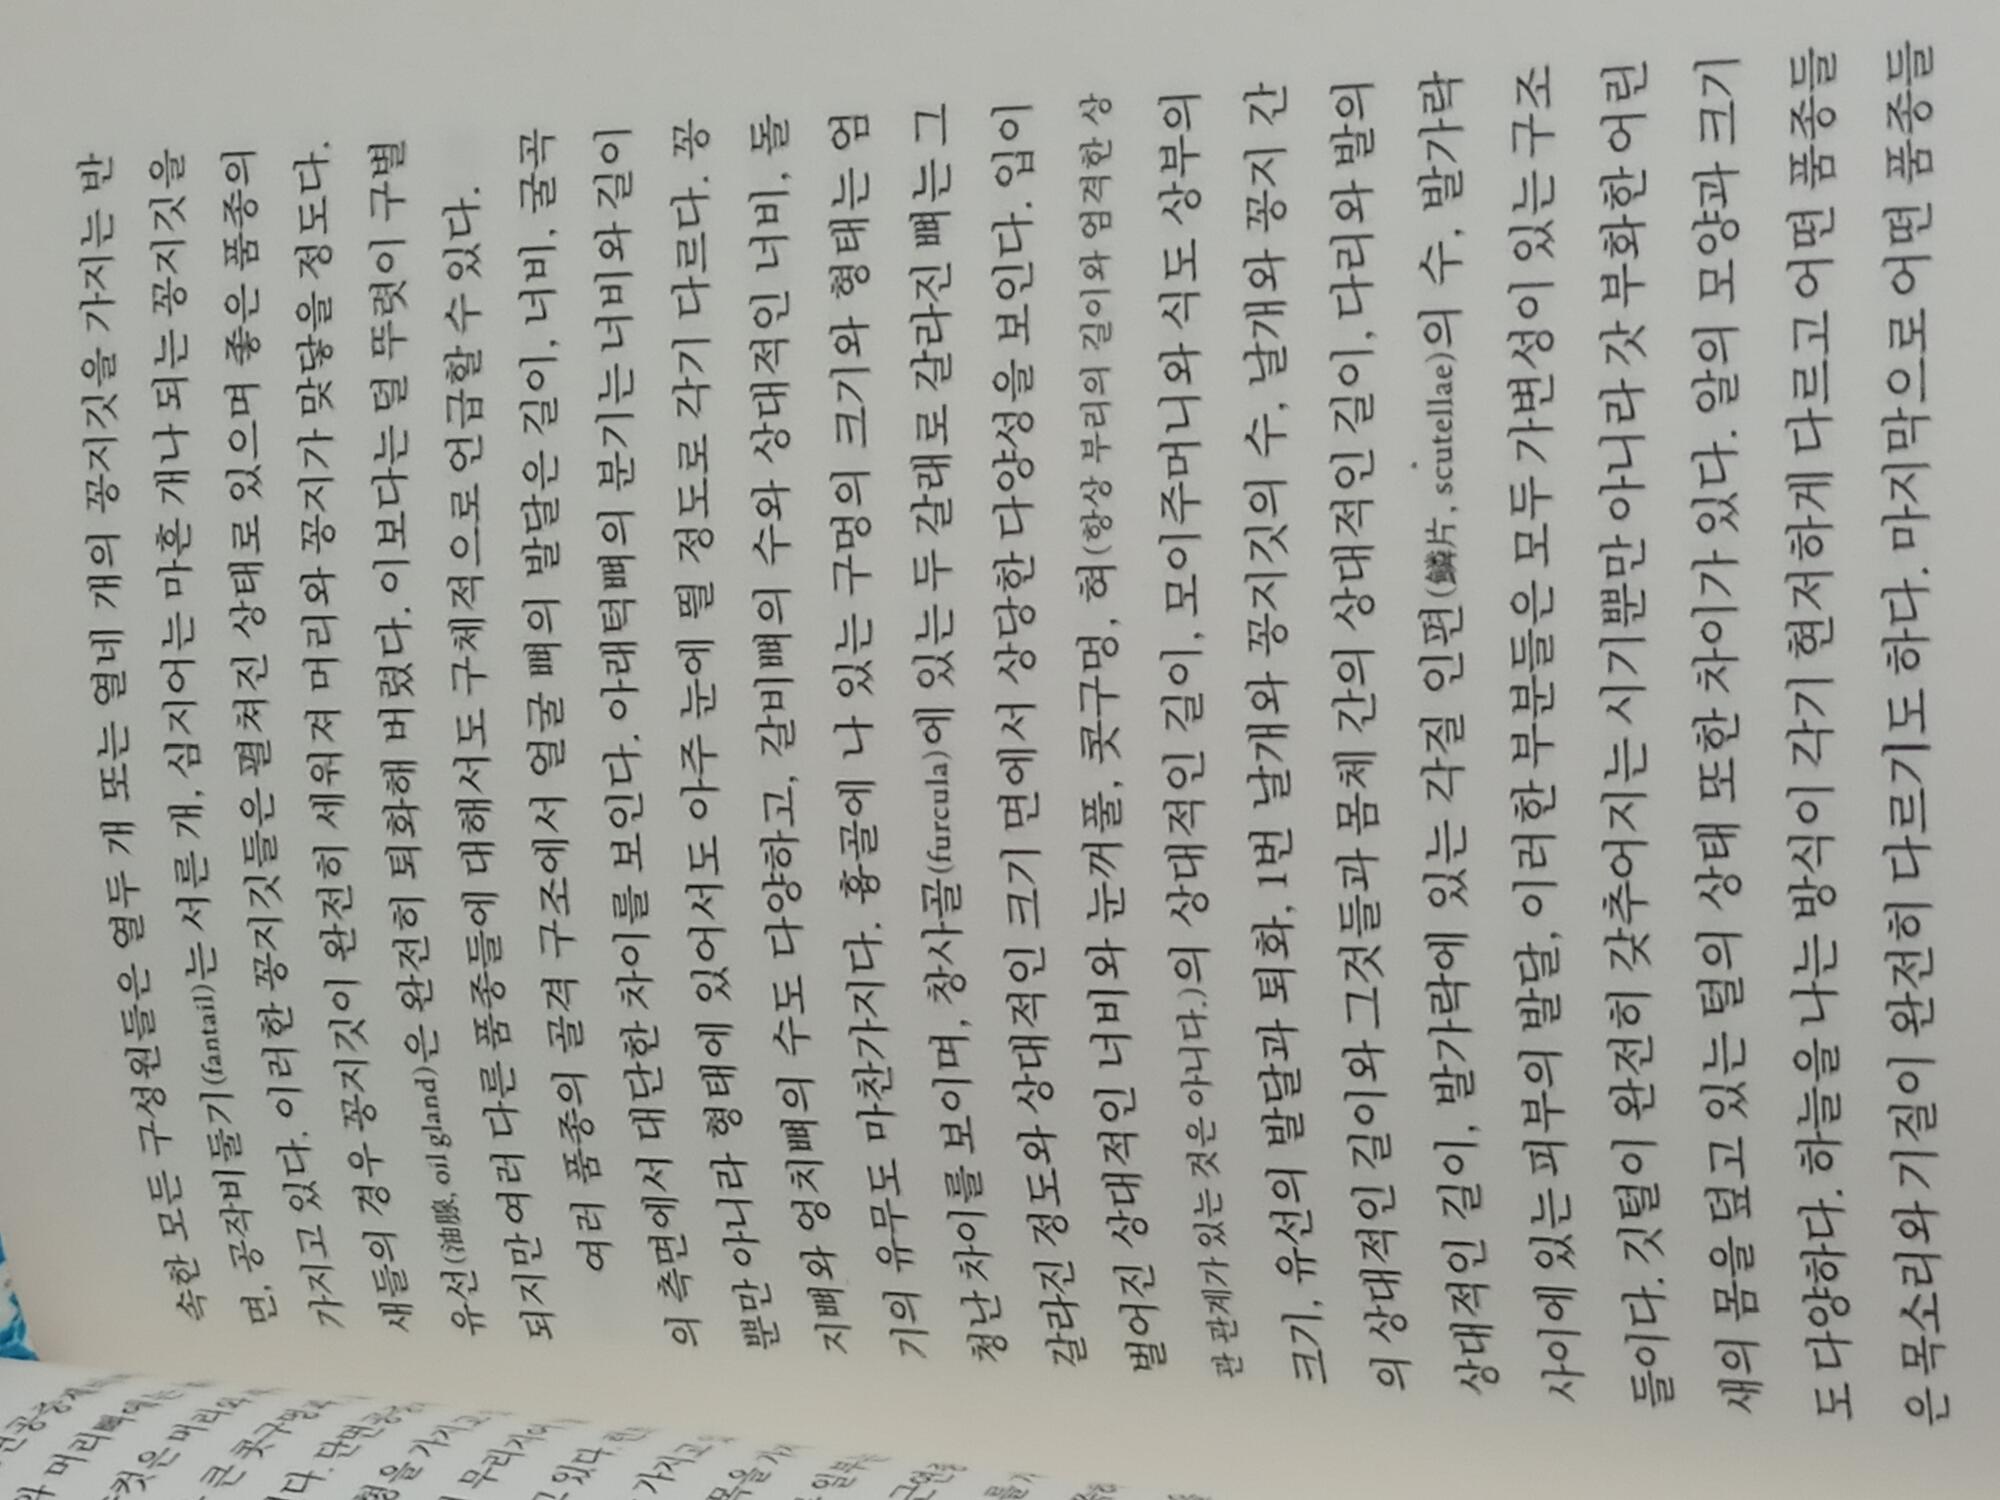 속한 모든 구성원들은 열두 개 또는 열네 개의 꽁지깃을 가지는 반
면, 공작비둘기(fantail)는 서른 개, 심지어는 마흔 개나 되는 꽁지깃을
가지고 있다. 이러한 꽁지깃들은 펼쳐진 상태로 있으며 좋은 품종의
새들의 경우 꽁지깃이 완전히 세워져 머리와 꽁지가 맞닿을 정도다.
유선(油腺, oil gland)은 완전히 퇴화해 버렸다. 이보다는 덜 뚜렷이 구별
되지만 여러 다른 품종들에 대해서도 구체적으로 언급할 수 있다.
여러 품종의 골격 구조에서 얼굴 뼈의 발달은 길이, 너비, 굴곡
의 측면에서 대단한 차이를 보인다. 아래턱뼈의 분기는 너비와 길이
뿐만 아니라 형태에 있어서도 아주 눈에 띌 정도로 각기 다르다. 꽁
지뼈와 엉치뼈의 수도 다양하고, 갈비뼈의 수와 상대적인 너비, 돌
기의 유무도 마찬가지다. 흉골에 나 있는 구멍의 크기와 형태는 엄
청난 차이를 보이며, 창사골(furcula)에 있는 두 갈래로 갈라진 뼈는 그
갈라진 정도와 상대적인 크기 면에서 상당한 다양성을 보인다. 입이
벌어진 상대적인 너비와 눈꺼풀, 콧구멍, 혀(항상 부리의 길이와 엄격한 상
관 관계가 있는 것은 아니다.)의 상대적인 길이, 모이주머니와 식도 상부의
크기, 유선의 발달과 퇴화, 1번 날개와 꽁지깃의 수, 날개와 꽁지 간
의 상대적인 길이와 그것들과 몸체 간의 상대적인 길이, 다리와 발의
상대적인 길이, 발가락에 있는 각질 인편(鱗片, scutellae)의 수, 발가락
사이에 있는 피부의 발달, 이러한 부분들은 모두 가변성이 있는 구조
들이다. 깃털이 완전히 갖추어지는 시기뿐만 아니라 갓 부화한 어린
새의 몸을 덮고 있는 털의 상태 또한 차이가 있다. 알의 모양과 크기
도 다양하다. 하늘을 나는 방식이 각기 현저하게 다르고 어떤 품종들
은 목소리와 기질이 완전히 다르기도 하다. 마지막으로 어떤 품종들